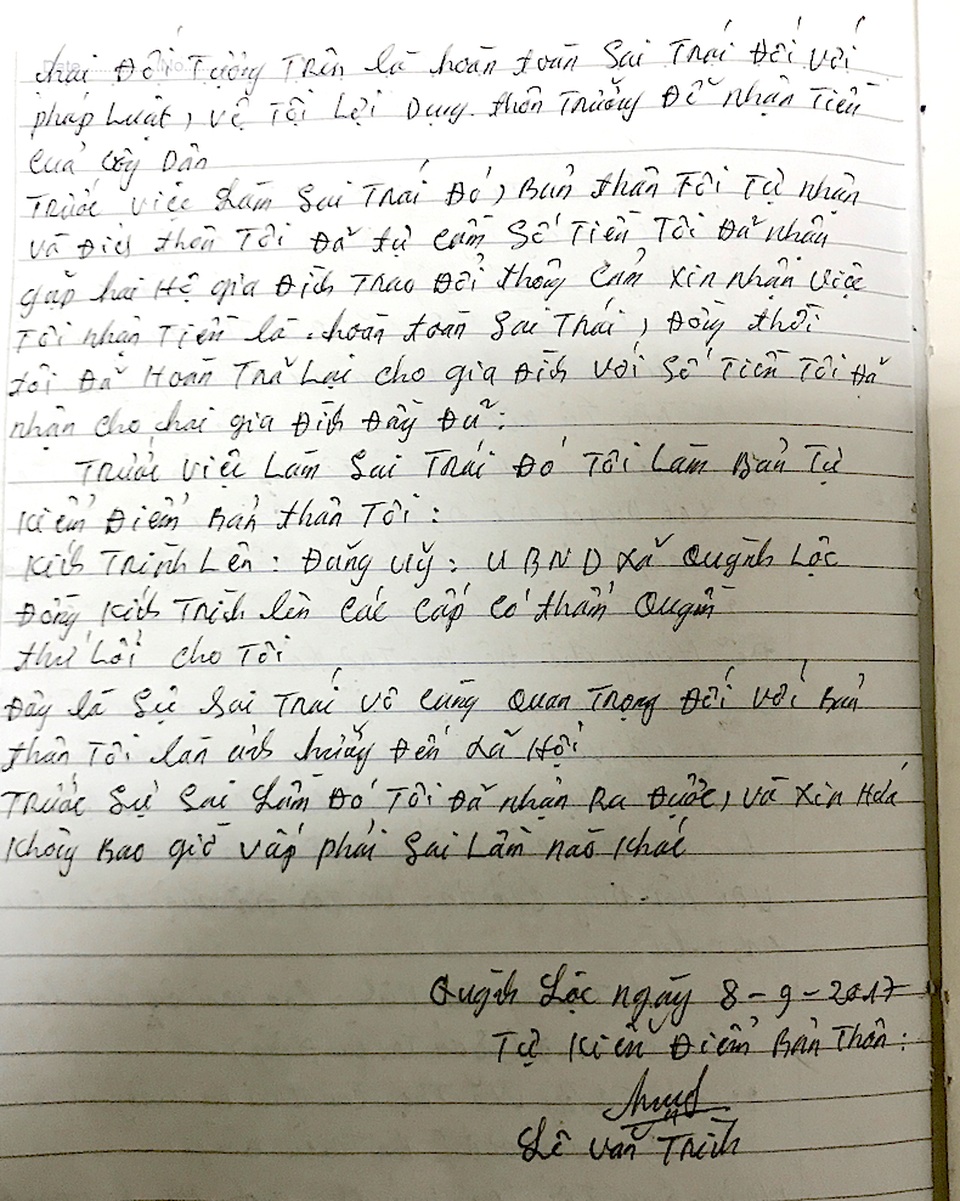 hai Đối Tượng Trên là hoàn toàn Sai Trái Đối với
pháp Luật, về Tội Lợi Dụng thôn Trưởng Để nhận Tiền
của Công Dân
Trước việc Làm Sai Trái Đó, Bản thân Tôi Tự nhận
và thôn Tôi Đã tự cầm Số Tiền Tôi Đã nhận
gặp hai Hộ gia Đình Trao Đổi thông Cảm xin nhận Việc
Tôi nhận Tiền là hoàn toàn Sai Trái, Đồng thời
tôi Đã Hoàn Trả Lại cho gia Đình với Số Tiền Tôi Đã
nhận cho hai gia Đình Đầy Đủ:
Trước việc Làm Sai Trái Đó Tôi Làm Bản Tự
Kiểm Điểm Bản thân Tôi:
Kính Trình Lên: Đảng uỷ: UBND xã Quỳnh Lộc
Đồng Kính Trình lên Các Cấp Có thẩm Quyền
thứ Lỗi cho Tôi
Đây là Sự Sai Trái vô cùng Quan Trọng Đối với Bản
thân Tôi lẫn ảnh hưởng Đến xã Hội
Trước Sự Sai Lầm Đó Tôi Đã nhận Ra Được, và xin Hứa
Không Bao giờ vấp phải Sai Lầm nào Khác
Quỳnh Lộc ngày 8-9-2017
Tự Kiểm Điểm Bản Thân:
Lê Văn Trình